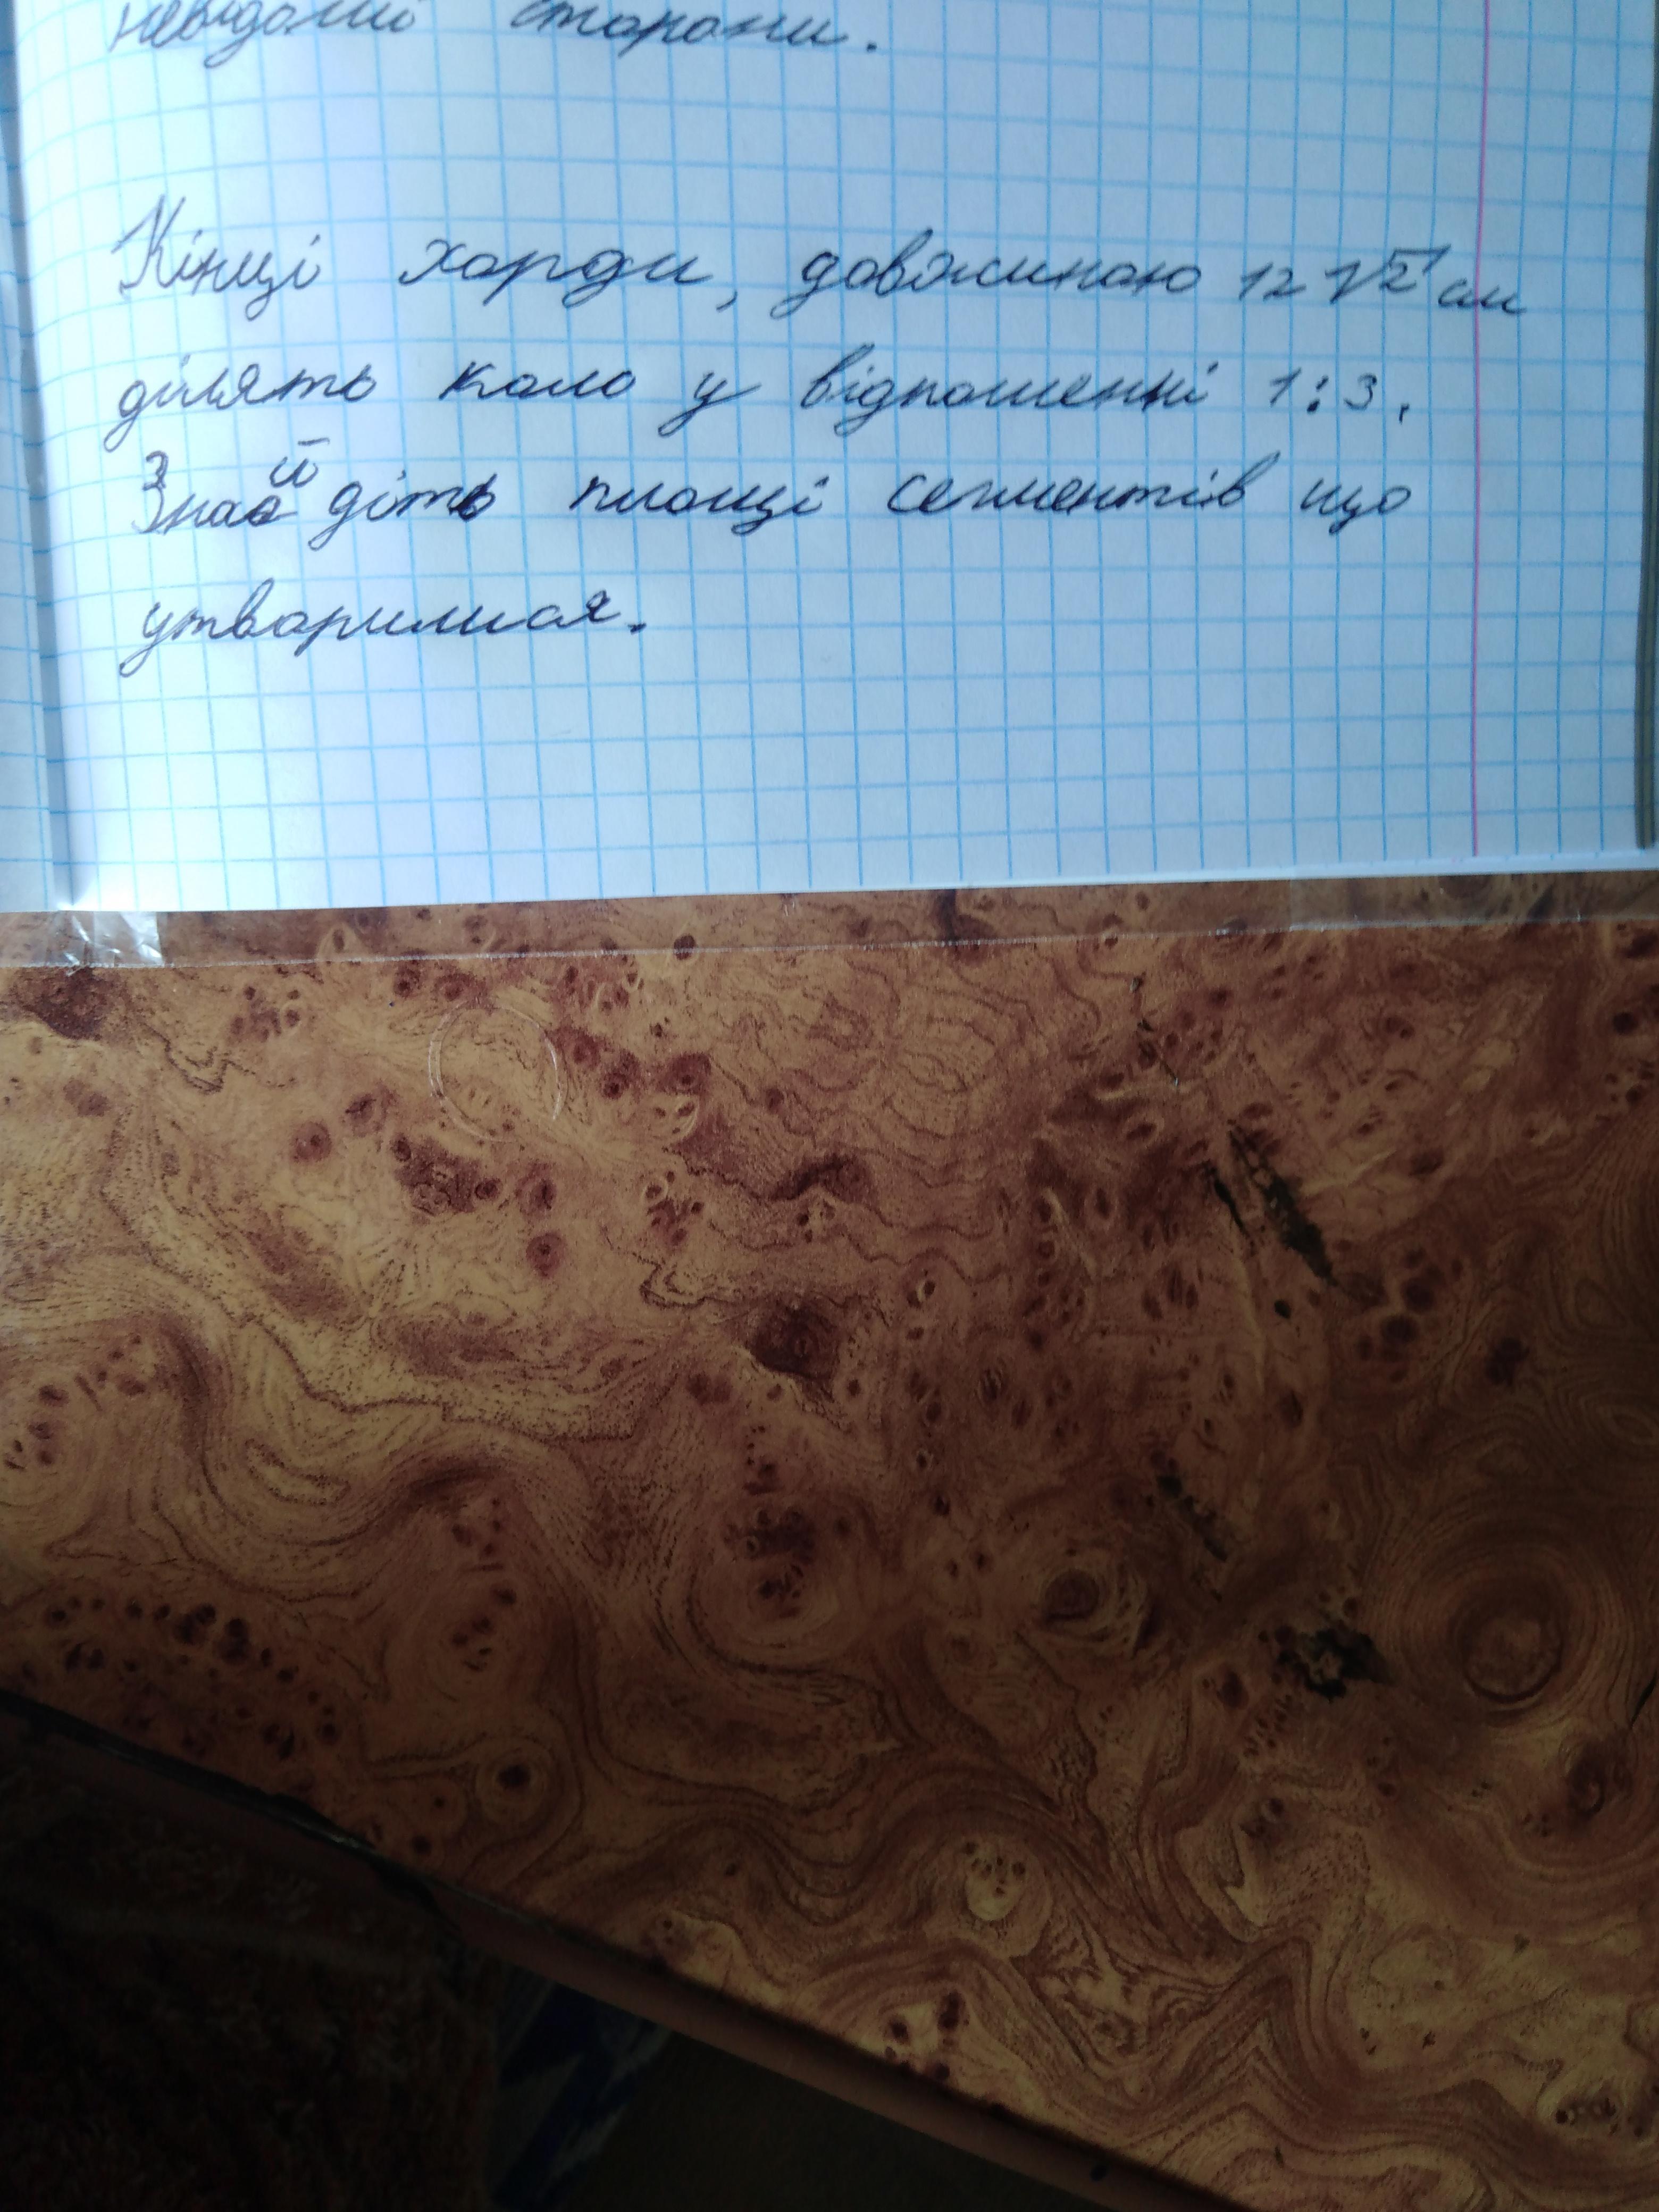 невідомі сторони.
Кінці хорди, довжиною 12√2 см
ділять коло у відношенні 1:3.
Знайдіть площі сегментів що
утворилися.